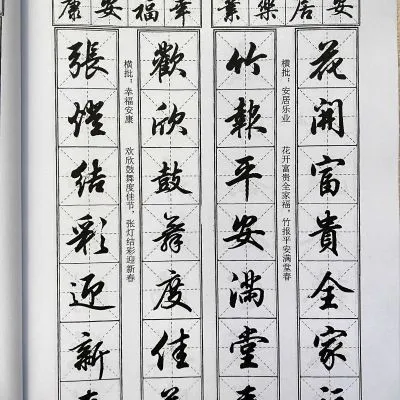 安居樂業
花開富貴全家
横批：安居乐业 花开富贵全家福，竹报平安满堂春
竹報平安滿堂
幸福安康
歡欣鼓舞度佳
横批：幸福安康 欢欣鼓舞度佳节，张灯结彩迎新春
張燈結彩迎新